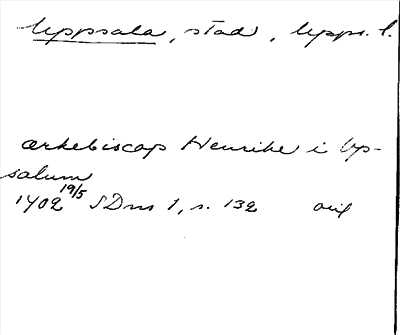 Uppsala, stad, Upps. l.
ærkebiscop Henrike i Up-
salum
1402 19/5 SDns 1, s. 132 orig